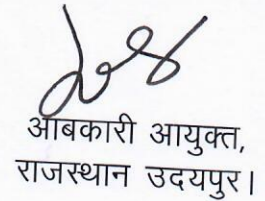 आबकारी आयुक्त,
राजस्थान उदयपुर।